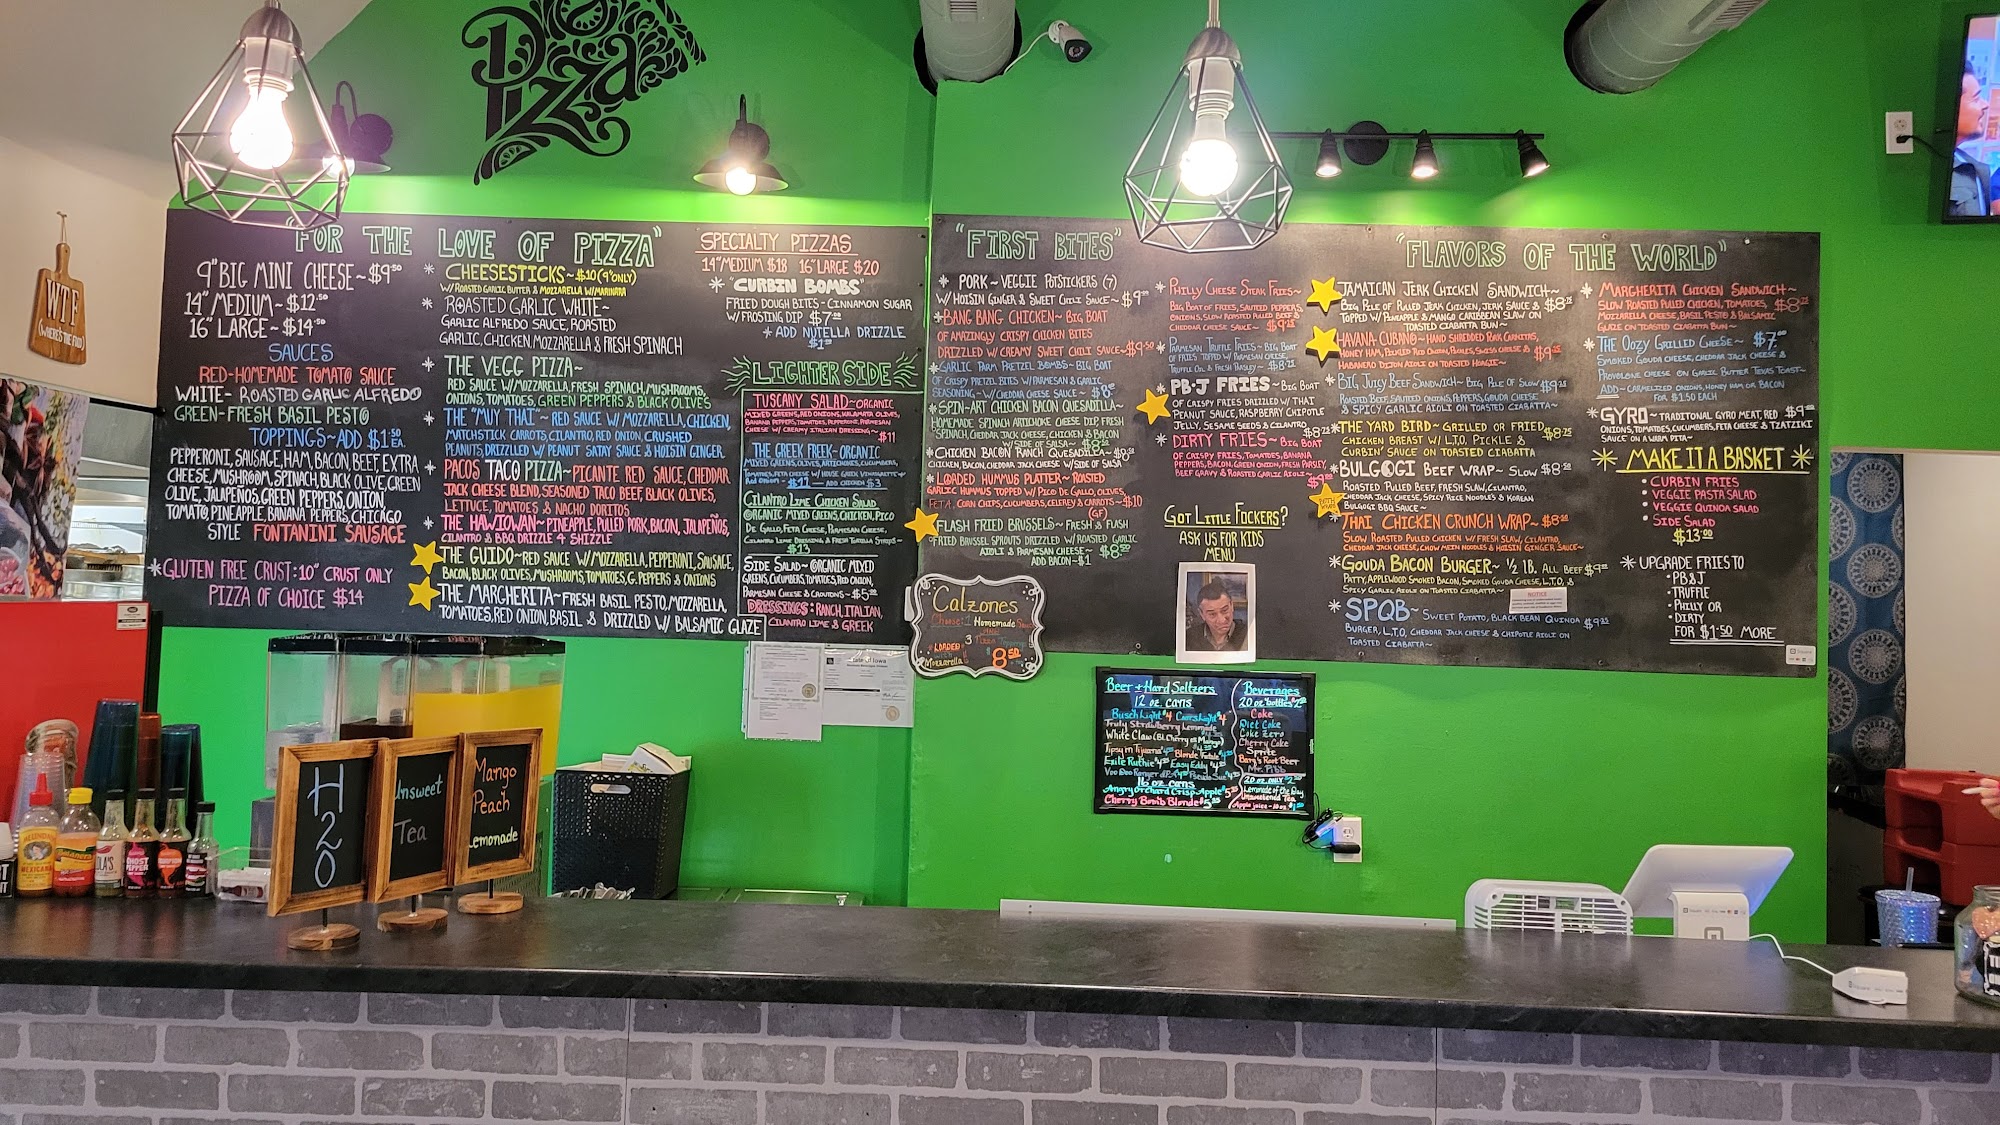 Pizza
WTF
(WHERE'S THE FOOD)
"FOR THE LOVE OF PIZZA"
9" BIG MINI CHEESE~$9.50
14" MEDIUM~$12.50
16" LARGE~$14.50
SAUCES
RED-HOMEMADE TOMATO SAUCE
WHITE-ROASTED GARLIC ALFREDO
GREEN-FRESH BASIL PESTO
TOPPINGS~ADD $1.50 EA.
PEPPERONI, SAUSAGE, HAM, BACON, BEEF, EXTRA
CHEESE, MUSHROOM, SPINACH, BLACK OLIVE, GREEN
OLIVE, JALAPEÑOS, GREEN PEPPERS, ONION,
TOMATO, PINEAPPLE, BANANA PEPPERS, CHICAGO
STYLE FONTANINI SAUSAGE
*GLUTEN FREE CRUST: 10" CRUST ONLY
PIZZA OF CHOICE $14
* CHEESESTICKS~$10 (9" ONLY)
W/ ROASTED GARLIC BUTTER & MOZZARELLA W/ MARINARA
* ROASTED GARLIC WHITE~
GARLIC ALFREDO SAUCE, ROASTED
GARLIC, CHICKEN, MOZZARELLA & FRESH SPINACH
* THE VEGG PIZZA~
RED SAUCE W/ MOZZARELLA, FRESH SPINACH, MUSHROOMS,
ONIONS, TOMATOES, GREEN PEPPERS & BLACK OLIVES
* THE "MUY THAI"~ RED SAUCE W/ MOZZARELLA, CHICKEN,
MATCHSTICK CARROTS, CILANTRO, RED ONION, CRUSHED
PEANUTS, DRIZZLED W/ PEANUT SATAY SAUCE & HOISIN GINGER.
* PACOS TACO PIZZA~PICANTE RED SAUCE, CHEDDAR
JACK CHEESE BLEND, SEASONED TACO BEEF, BLACK OLIVES,
LETTUCE, TOMATOES & NACHO DORITOS
* THE HAWIOWAN~PINEAPPLE, PULLED PORK, BACON, JALAPEÑOS,
CILANTRO & BBQ DRIZZLE 4 SHIZZLE
THE GUIDO~RED SAUCE W/ MOZZARELLA, PEPPERONI, SAUSAGE,
BACON, BLACK OLIVES, MUSHROOMS, TOMATOES, G. PEPPERS & ONIONS
* THE MARGHERITA~FRESH BASIL PESTO, MOZZARELLA,
TOMATOES, RED ONION, BASIL & DRIZZLED W/ BALSAMIC GLAZE
SPECIALTY PIZZAS
14" MEDIUM $18 16" LARGE $20
* "CURBIN BOMBS"
FRIED DOUGH BITES-CINNAMON SUGAR
W/ FROSTING DIP $7
* ADD NUTELLA DRIZZLE
LIGHTER SIDE
TUSCANY SALAD~ORGANIC
MIXED GREENS, RED ONIONS, KALAMATA OLIVES,
BANANA PEPPERS, TOMATOES, PEPPERONI, PARMESAN
CHEESE W/ CREAMY ITALIAN DRESSING~
$11
THE GREEK FREEK-ORGANIC
MIXED GREENS, OLIVES, ARTICHOKES, CUCUMBERS,
TOMATOES, FETA CHEESE W/ HOUSE GREEK VINAIGRETTE &
RED ONION~ $11 - ADD CHICKEN $3
CILANTRO LIME CHICKEN SALAD
ORGANIC MIXED GREENS, CHICKEN, PICO
DE GALLO, FETA CHEESE, PARMESAN CHEESE,
CILANTRO LIME DRESSING & FRESH TORTILLA STRIPS~
$13
SIDE SALAD~ORGANIC MIXED
GREENS, CUCUMBERS, TOMATOES, RED ONION,
PARMESAN CHEESE & CROUTONS~$5
DRESSINGS: RANCH, ITALIAN,
CILANTRO LIME & GREEK
"FIRST BITES"
* PORK~VEGGIE POTSTICKERS (7)
W/ HOISIN GINGER & SWEET CHILI SAUCE~$9
* BANG BANG CHICKEN~BIG BOAT
OF AMAZINGLY CRISPY CHICKEN BITES
DRIZZLED W/ CREAMY SWEET CHILI SAUCE~$9.50
* GARLIC PARM PRETZEL BOMBS~BIG BOAT
OF CRISPY PRETZEL BITES W/ PARMESAN & GARLIC
SEASONING~W/ CHEDDAR CHEESE SAUCE~$8
* SPIN-ART CHICKEN BACON QUESADILLA~
HOMEMADE SPINACH ARTICHOKE CHEESE DIP, FRESH
SPINACH, CHEDDAR JACK CHEESE, CHICKEN & BACON
W/ SIDE OF SALSA~
* CHICKEN BACON RANCH QUESADILLA~
CHICKEN, BACON, CHEDDAR JACK CHEESE W/ SIDE OF SALSA
* LOADED HUMMUS PLATTER~ROASTED
GARLIC HUMMUS TOPPED W/ PICO DE GALLO, OLIVES,
FETA, CORN CHIPS, CUCUMBERS, CELERY & CARROTS~$10
(GF)
FLASH FRIED BRUSSELS~FRESH & FLASH
FRIED BRUSSEL SPROUTS DRIZZLED W/ ROASTED GARLIC
AIOLI & PARMESAN CHEESE~$8.50
ADD BACON~$1
* PHILLY CHEESE STEAK FRIES~
BIG BOAT OF FRIES, SAUTEED PEPPERS,
ONIONS, SLOW ROASTED PULLED BEEF &
CHEDDAR CHEESE SAUCE~$9.25
* PARMESAN TRUFFLE FRIES~BIG BOAT
OF FRIES TOPPED W/ PARMESAN CHEESE,
TRUFFLE OIL & FRESH PARSLEY~$8.25
* PB·J FRIES~BIG BOAT
OF CRISPY FRIES DRIZZLED W/ THAI
PEANUT SAUCE, RASPBERRY CHIPOTLE
JELLY, SESAME SEEDS & CILANTRO
* DIRTY FRIES~BIG BOAT
OF CRISPY FRIES, TOMATOES, BANANA
PEPPERS, BACON, GREEN ONION, FRESH PARSLEY,
BEEF GRAVY & ROASTED GARLIC AIOLI~
GOT LITTLE FOCKERS?
ASK US FOR KIDS
MENU
"FLAVORS OF THE WORLD"
JAMAICAN JERK CHICKEN SANDWICH~
BIG PILE OF PULLED JERK CHICKEN, JERK SAUCE & $8.75
TOPPED W/ PINEAPPLE & MANGO CARIBBEAN SLAW ON
TOASTED CIABATTA BUN~
HAVANA CUBANO~HAND SHREDDED PORK CARNITAS,
HONEY HAM, PICKLED RED ONION, PICKLES, SWISS CHEESE & $9.25
HABANERO DIJON AIOLI ON TOASTED HOAGIE~
* BIG JUICY BEEF SANDWICH~BIG PILE OF SLOW $9.25
ROASTED BEEF, SAUTEED ONIONS, PEPPERS, GOUDA CHEESE
& SPICY GARLIC AIOLI ON TOASTED CIABATTA~
* THE YARD BIRD~GRILLED OR FRIED
CHICKEN BREAST W/ L.T.O, PICKLE & $8.75
CURBIN' SAUCE ON TOASTED CIABATTA
* BULGOGI BEEF WRAP~SLOW $8
ROASTED PULLED BEEF, FRESH SLAW, CILANTRO,
CHEDDAR JACK CHEESE, SPICY RICE NOODLES & KOREAN
BULGOGI BBQ SAUCE~
THAI CHICKEN CRUNCH WRAP~$8
SLOW ROASTED PULLED CHICKEN W/ FRESH SLAW, CILANTRO,
CHEDDAR JACK CHEESE, CHOW MEIN NOODLES & HOISIN GINGER SAUCE~
* GOUDA BACON BURGER~½ LB. ALL BEEF $9
PATTY, APPLEWOOD SMOKED BACON, SMOKED GOUDA CHEESE, L.T.O, &
SPICY GARLIC AIOLI ON TOASTED CIABATTA~
NOTICE
* SPQB~SWEET POTATO, BLACK BEAN QUINOA $9
BURGER, L.T.O, CHEDDAR JACK CHEESE & CHIPOTLE AIOLI ON
TOASTED CIABATTA~
* MARGHERITA CHICKEN SANDWICH~
SLOW ROASTED PULLED CHICKEN, TOMATOES, $8
MOZZARELLA CHEESE, BASIL PESTO & BALSAMIC
GLAZE ON TOASTED CIABATTA BUN~
* THE OOZY GRILLED CHEESE~ $7
SMOKED GOUDA CHEESE, CHEDDAR JACK CHEESE &
PROVOLONE CHEESE ON GARLIC BUTTER TEXAS TOAST~
ADD~CARMELIZED ONIONS, HONEY HAM OR BACON
FOR $1.50 EACH
GYRO~TRADITIONAL GYRO MEAT, RED $9
ONIONS, TOMATOES, CUCUMBERS, FETA CHEESE & TZATZIKI
SAUCE ON A WARM PITA~
* MAKE IT A BASKET *
• CURBIN FRIES
• VEGGIE PASTA SALAD
• VEGGIE QUINOA SALAD
• SIDE SALAD
$13.00
* UPGRADE FRIES TO
• PB&J
• TRUFFLE
• PHILLY OR
• DIRTY
FOR $1.50 MORE
Calzones
Choose: 1 Homemade Sauce
3 Pizza Toppings
LOADED
with
Mozzarella
$8.50
Beer + Hard Seltzers
12 oz. cans
Busch Light $4 Coors Light $4
Truly Strawberry Lemonade
White Claw (Bl. Cherry or Mango)
Exile Ruthie Easy Eddy
16 oz cans
Angry Orchard Crisp Apple $5
Cherry Bomb Blonde $5
Beverages
20 oz bottles $2
Coke
Diet Coke
Coke Zero
Cherry Coke
Sprite
Barq's Root Beer
Mr. Pibb
20 oz. only $2
Lemonade of the Day
Unsweetened Tea
Apple juice
State of Iowa
H2O
Unsweet
Tea
Mango
Peach
Lemonade
GHOST
PEPPER
Square